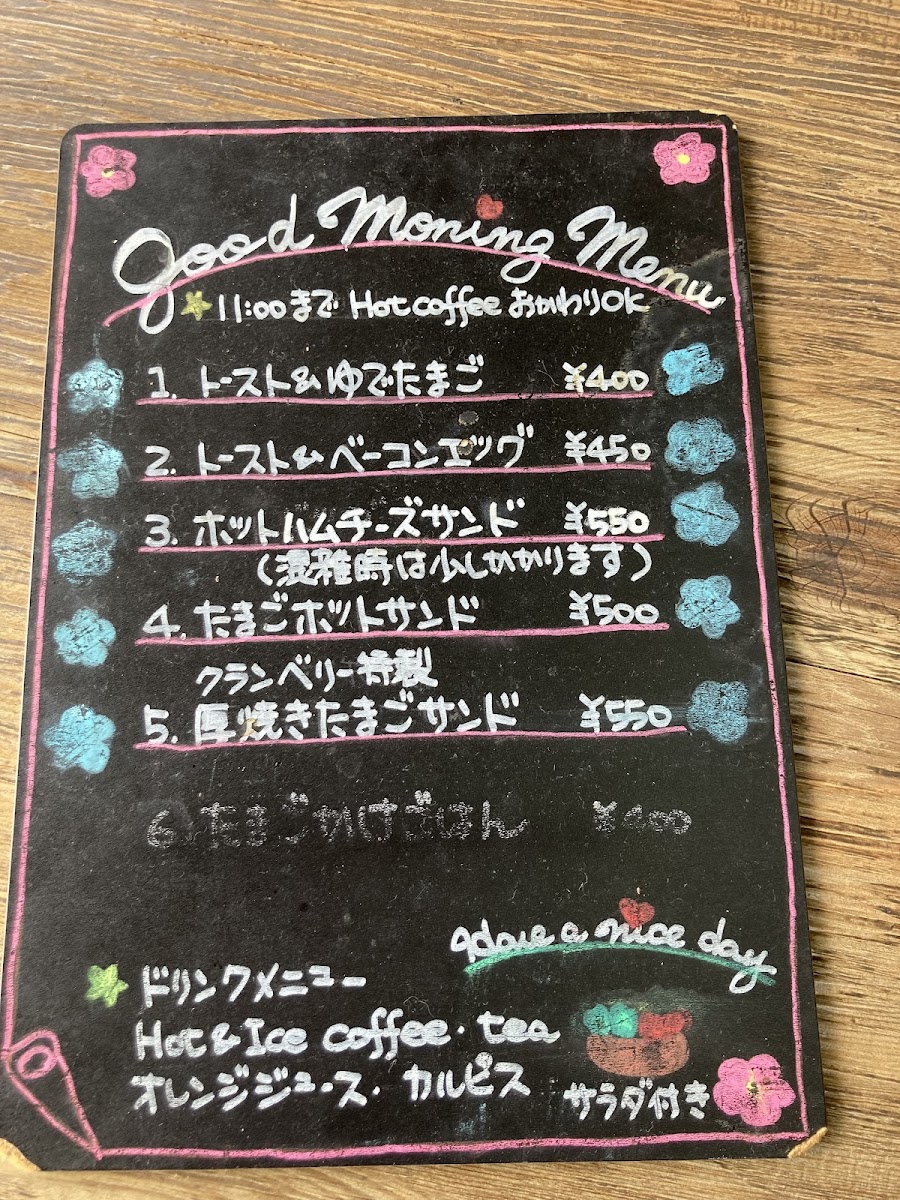 Good Moning Menu
11:00まで Hot coffee おかわりOK
1. トースト&ゆでたまご ¥400
2. トースト&ベーコンエッグ ¥450
3. ホットハムチーズサンド ¥550
(混雑時は少しかかります)
4. たまごホットサンド ¥500
クランベリー特製
5. 厚焼きたまごサンド ¥550
6. たまごかけごはん ¥400
Have a nice day
ドリンクメニュー
Hot & Ice coffee・tea
オレンジジュース・カルピス
サラダ付き